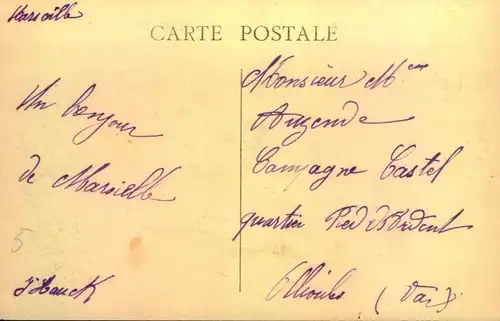 Marseille
CARTE POSTALE
Un bonjour
de Marseille
J Hauck
Monsieur M
Auzende
Campagne Castel
quartier Pied
Ollioules (Var)
5